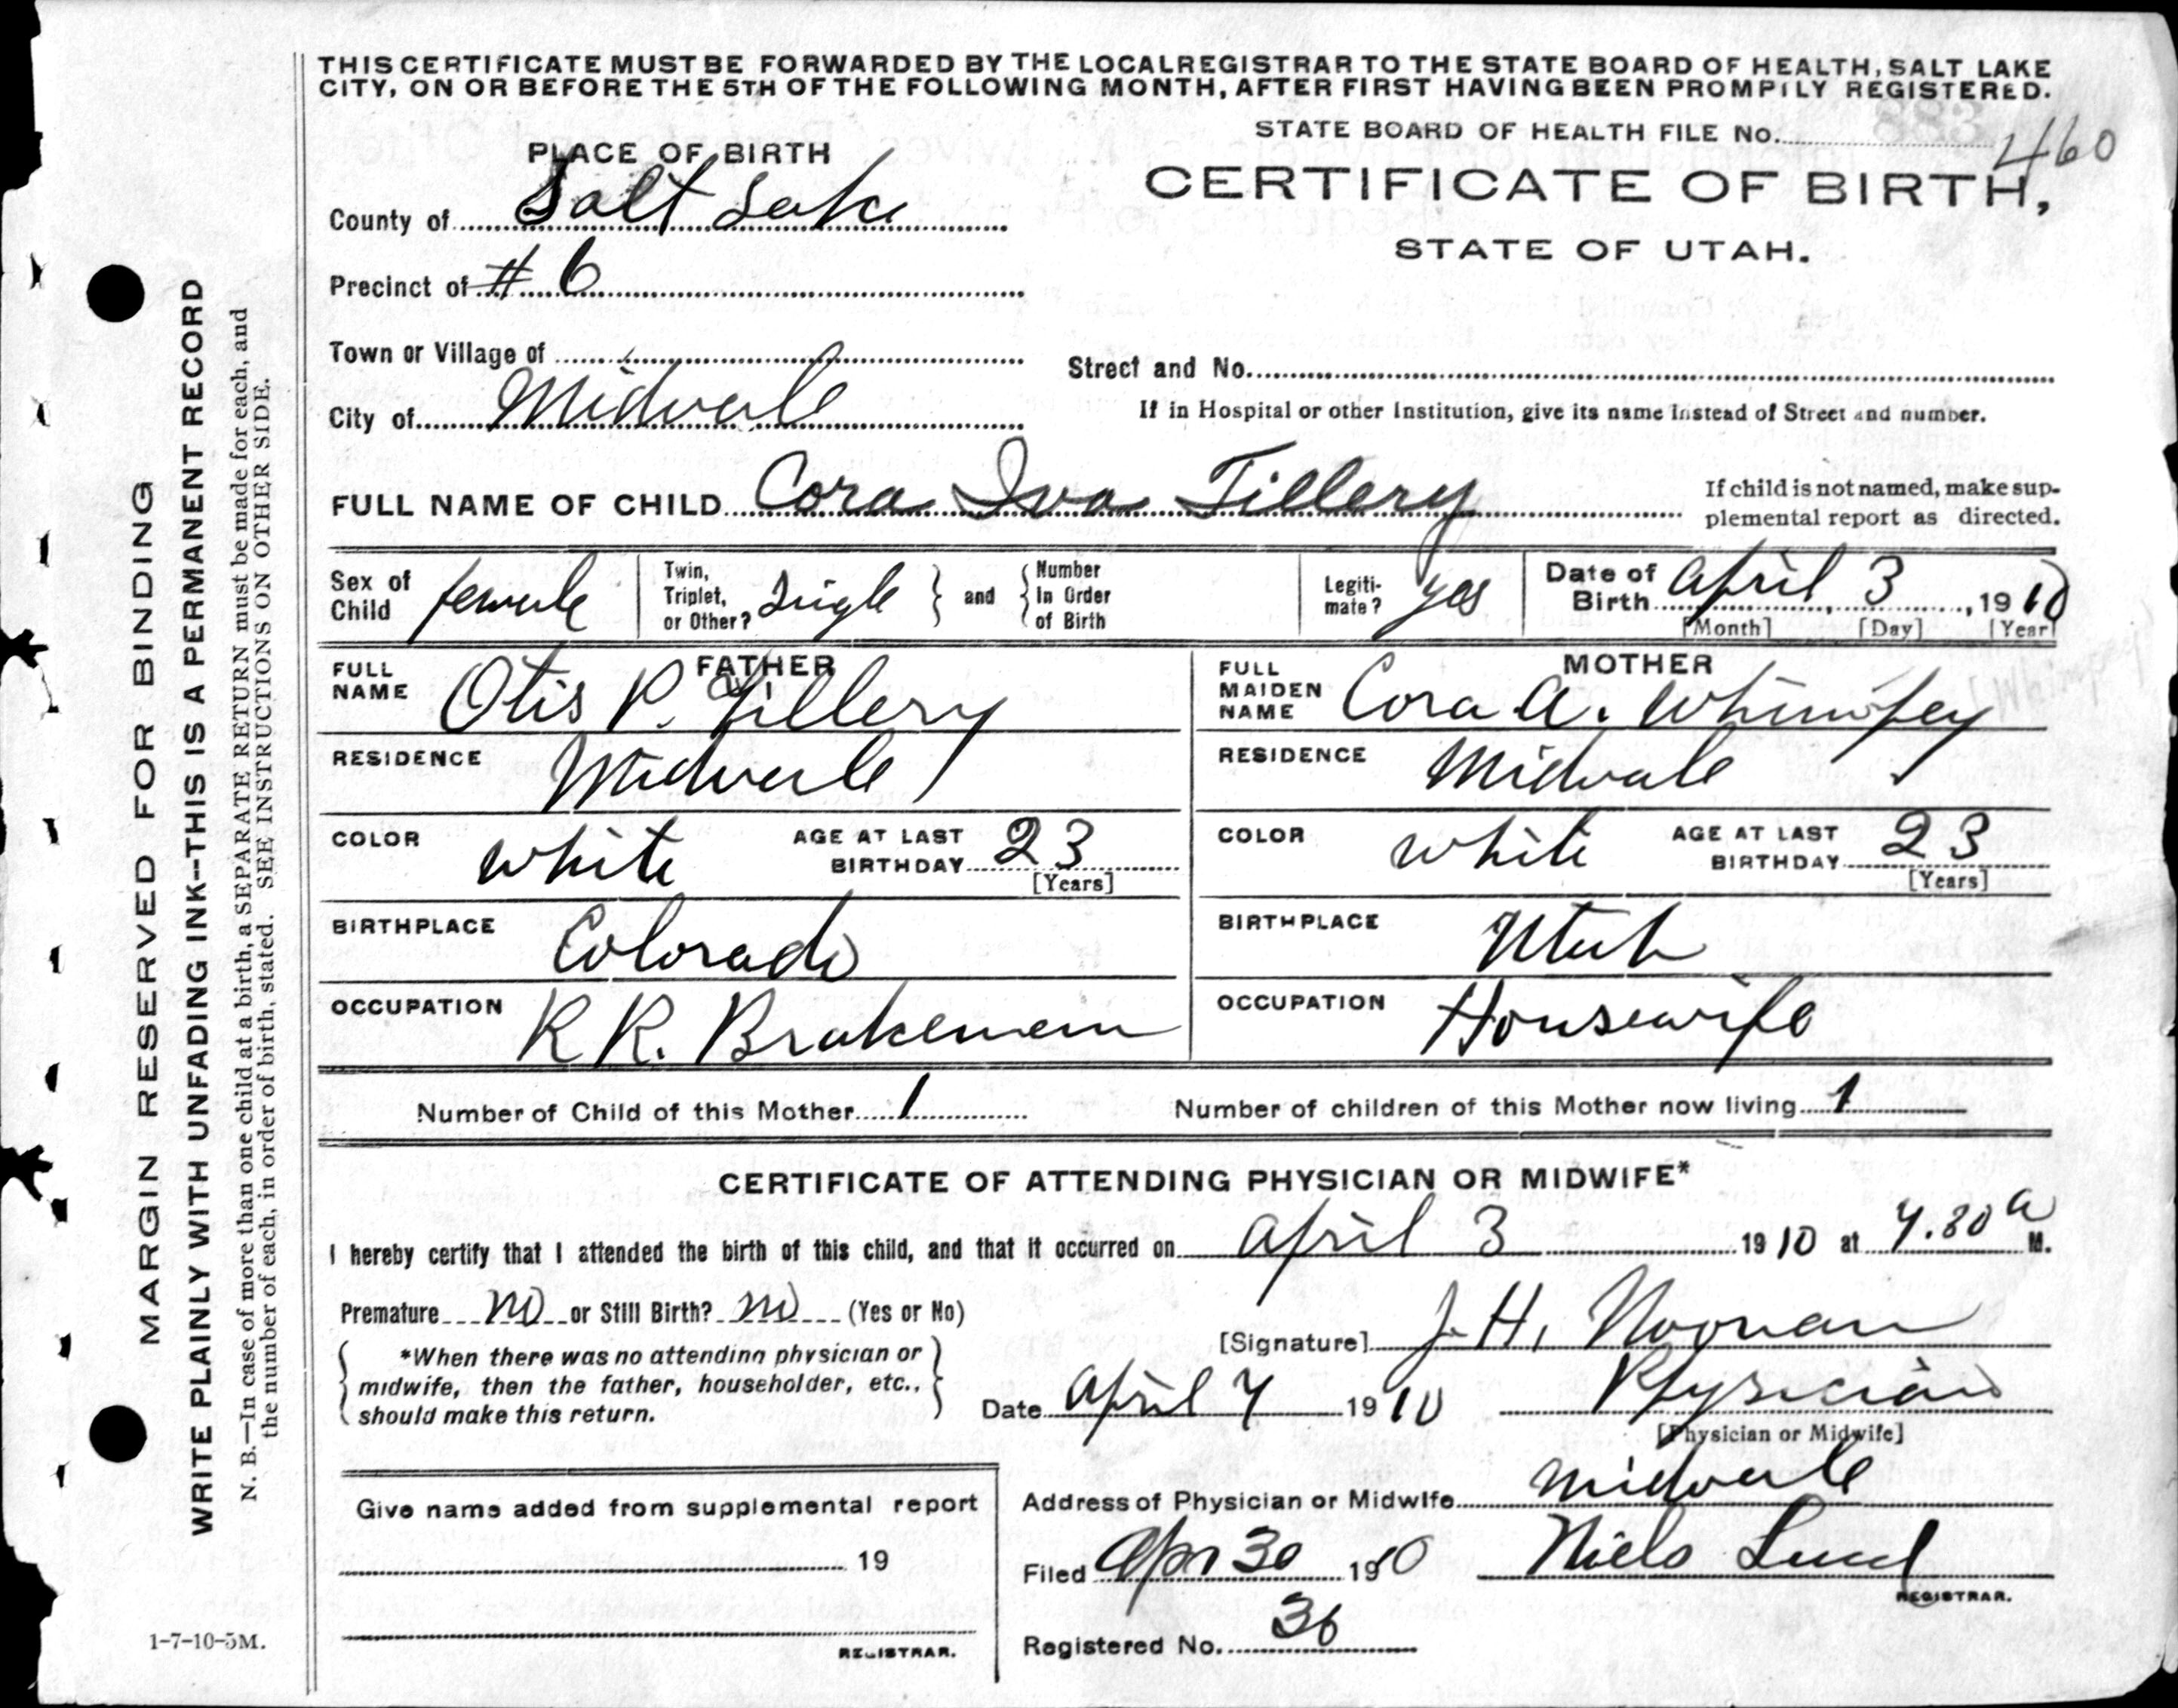 THIS CERTIFICATE MUST BE FORWARDED BY THE LOCAL REGISTRAR TO THE STATE BOARD OF HEALTH, SALT LAKE
CITY, ON OR BEFORE THE 5TH OF THE FOLLOWING MONTH, AFTER FIRST HAVING BEEN PROMPTLY REGISTERED.
STATE BOARD OF HEALTH FILE No. 883
460
PLACE OF BIRTH
CERTIFICATE OF BIRTH,
STATE OF UTAH.
County of Salt Lake
Precinct of # 6
Town or Village of
Street and No.
City of Midvale
If in Hospital or other Institution, give its name instead of Street and number.
FULL NAME OF CHILD Cora Iva Tillery
If child is not named, make sup-
plemental report as directed.
Sex of Child female
Twin, Triplet, or Other? Single } and { Number In Order of Birth
Legiti-mate? yes
Date of Birth April 3, 1910
[Month] [Day] [Year]
FATHER
FULL NAME Otis P. Tillery
RESIDENCE Midvale
COLOR white AGE AT LAST BIRTHDAY 23
[Years]
BIRTHPLACE Colorado
OCCUPATION R R. Brakeman
MOTHER
FULL MAIDEN NAME Cora A. Whimpey
RESIDENCE Midvale
COLOR white AGE AT LAST BIRTHDAY 23
[Years]
BIRTHPLACE Utah
OCCUPATION Housewife
Number of Child of this Mother 1 Number of children of this Mother now living 1
CERTIFICATE OF ATTENDING PHYSICIAN OR MIDWIFE*
I hereby certify that I attended the birth of this child, and that it occurred on April 3 1910 at M.
Premature no or Still Birth? no (Yes or No)
*When there was no attending physician or
midwife, then the father, householder, etc.,
should make this return.
[Signature] J. H. Noonan
Date April 1910 Physician
[Physician or Midwife]
Address of Physician or Midwife Midvale
Filed Apr 30 1910 Niels Lund
REGISTRAR.
Registered No. 36
Give name added from supplemental report
19
REGISTRAR.
1-7-10-5M.
MARGIN RESERVED FOR BINDING
WRITE PLAINLY WITH UNFADING INK--THIS IS A PERMANENT RECORD
N. B.—In case of more than one child at a birth, a SEPARATE RETURN must be made for each, and
the number of each, in order of birth, stated. SEE INSTRUCTIONS ON OTHER SIDE.